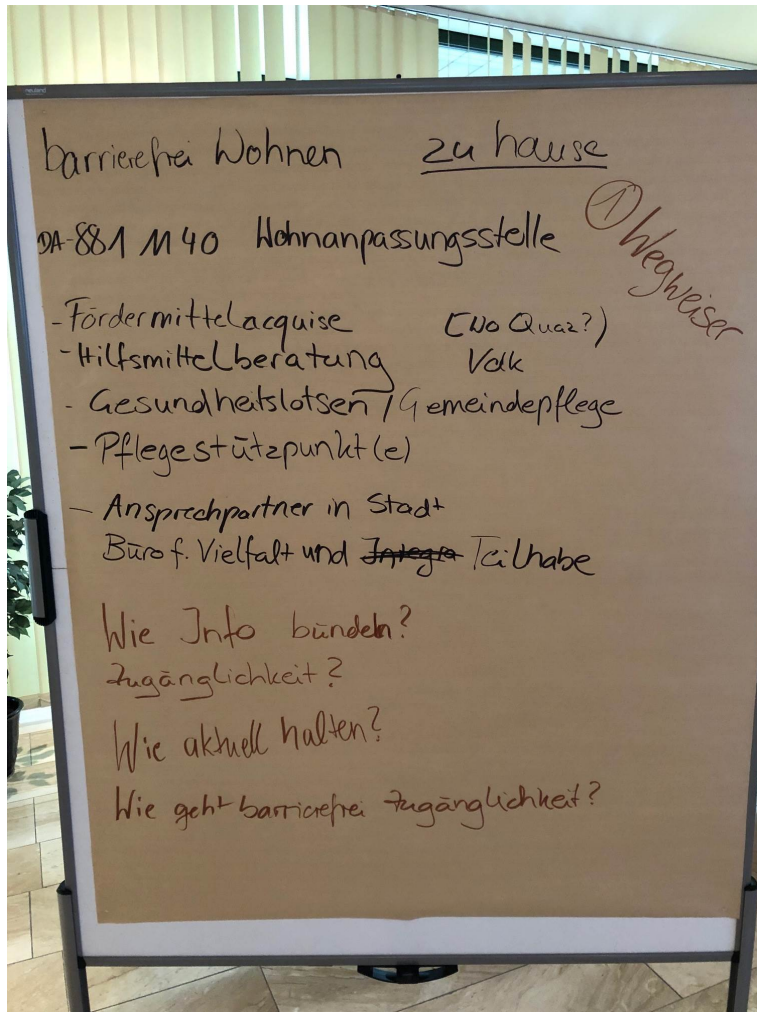 barrierefrei Wohnen zu hause
① Wegweiser
DA-881 1140 Wohnanpassungsstelle
- Fördermittelacquise (Wo Quaz?)
- Hilfsmittelberatung VdK
- Gesundheitslotsen / Gemeindepflege
- Pflegestützpunkt(e)
- Ansprechpartner in Stadt
Büro f. Vielfalt und Integra Teilhabe
Wie Info bündeln?
Zugänglichkeit?
Wie aktuell halten?
Wie geht barrierefrei Zugänglichkeit?